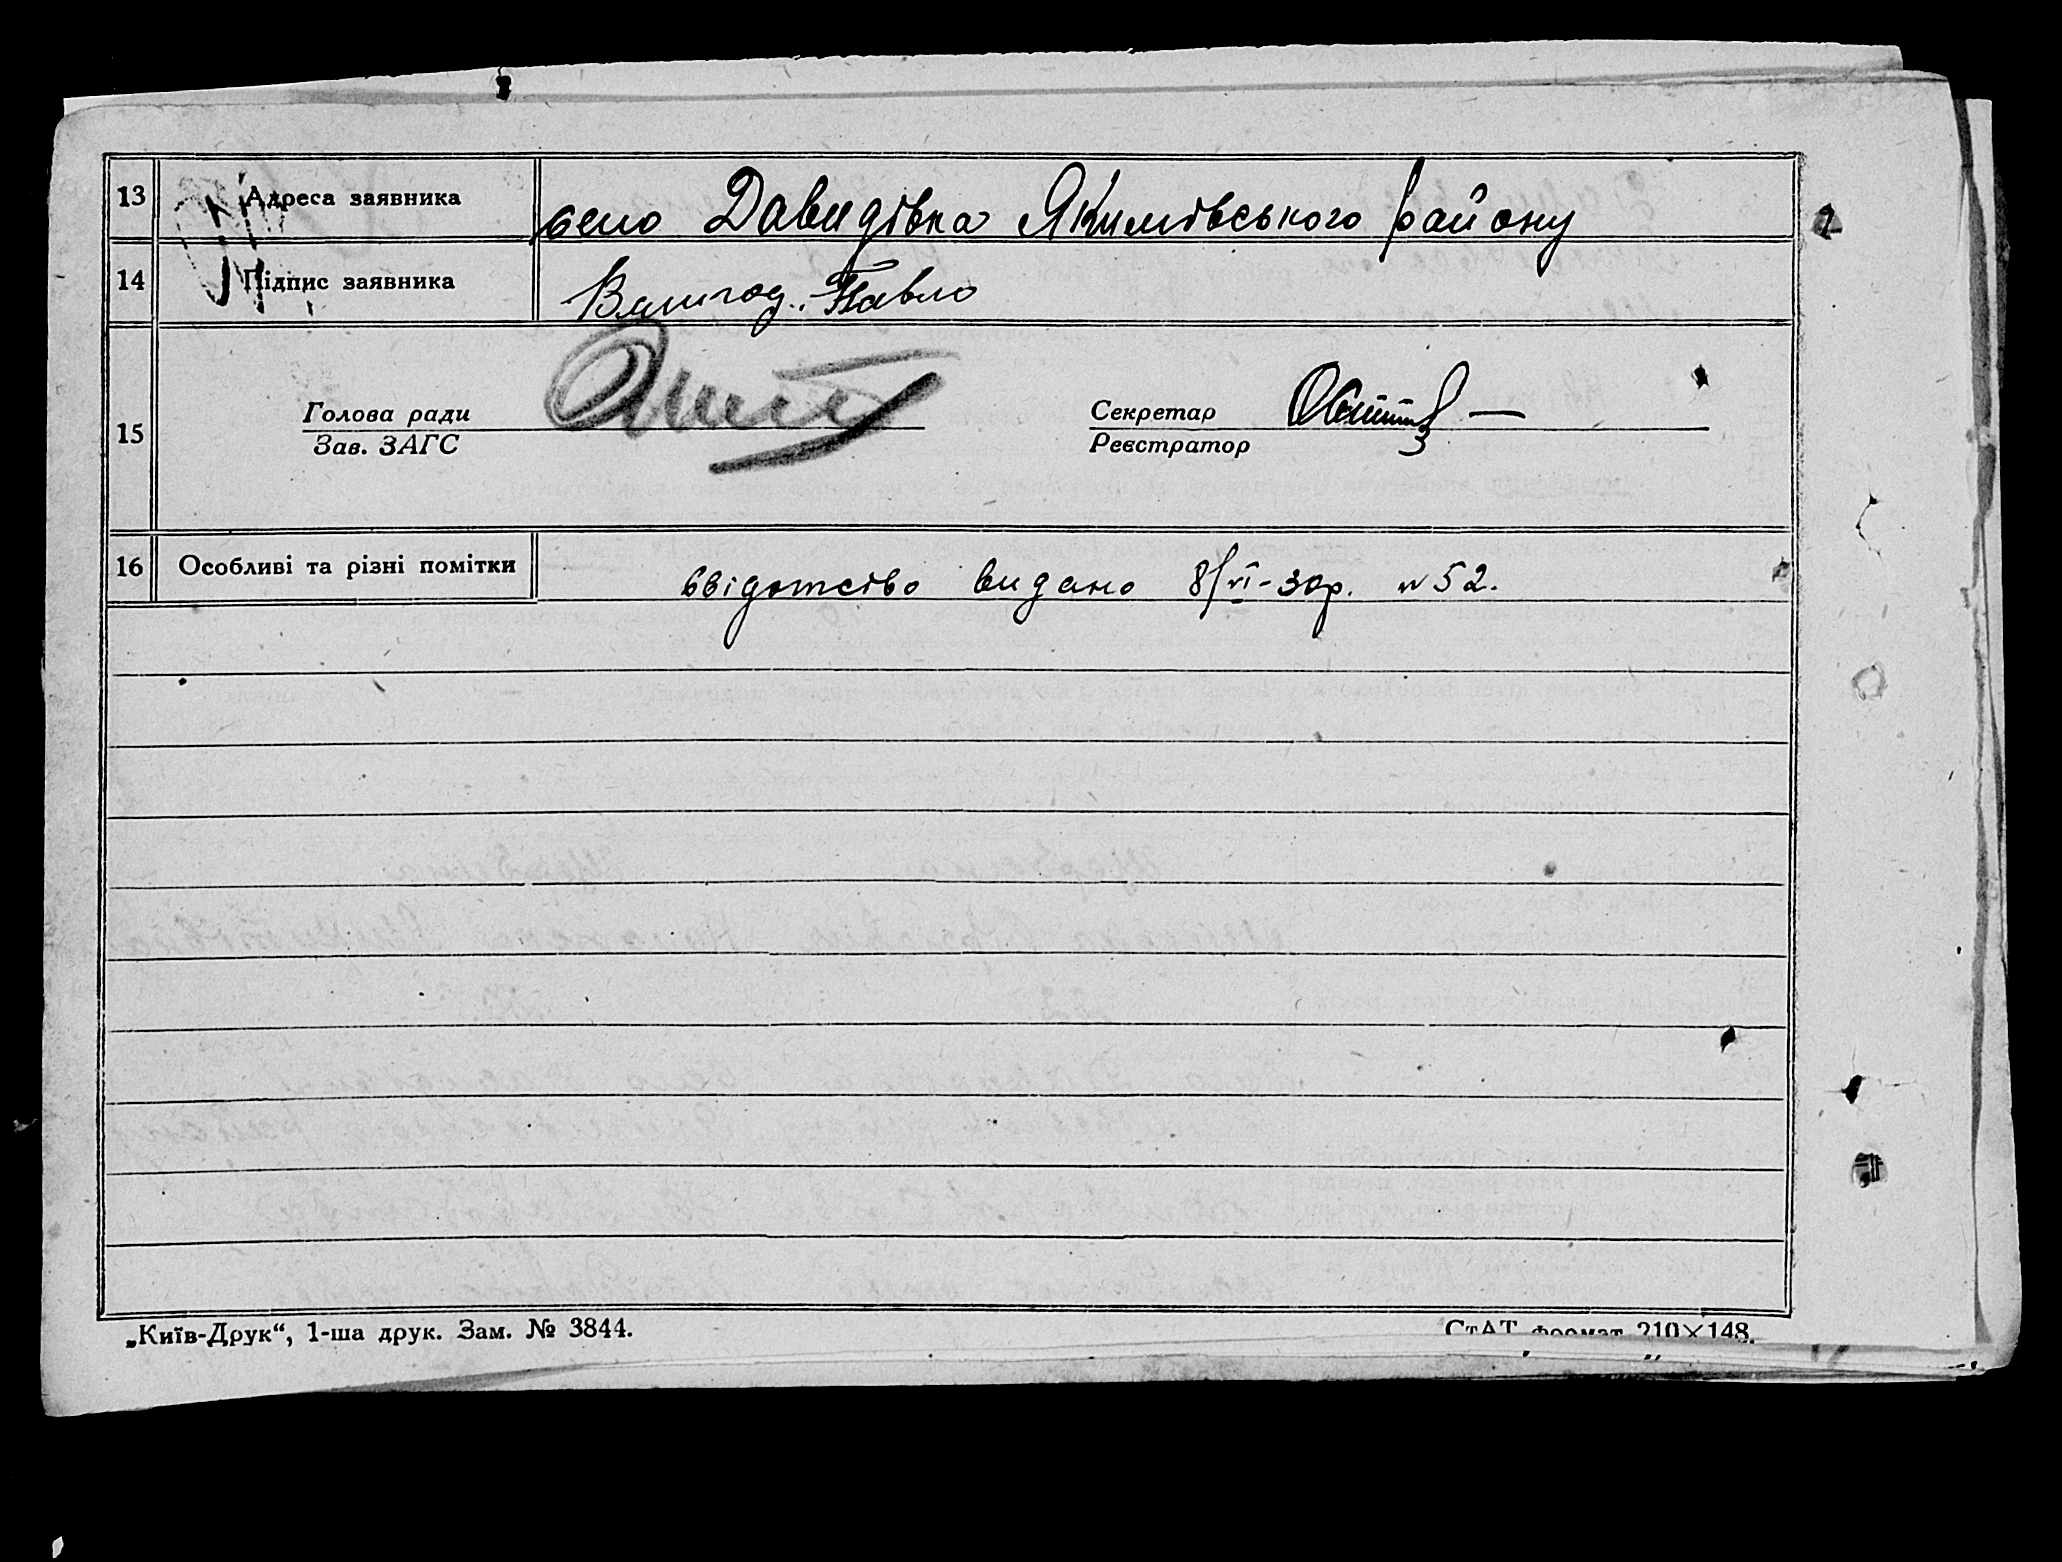 13 Адреса заявника село Давидівка Якимівського району
14 Підпис заявника Павло
15 Голова ради
Зав. ЗАГС
Секретар
Реєстратор
16 Особливі та різні помітки свідотство видано 8/VI-30р. № 52.
„Київ-Друк“, 1-ша друк. Зам. № 3844.
СтАТ формат 210×148.